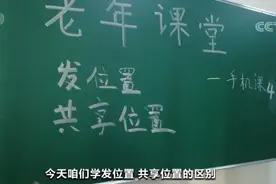 CC
老年课堂
发位置
一手机课4
共享位置
今天咱们学发位置 共享位置的区别